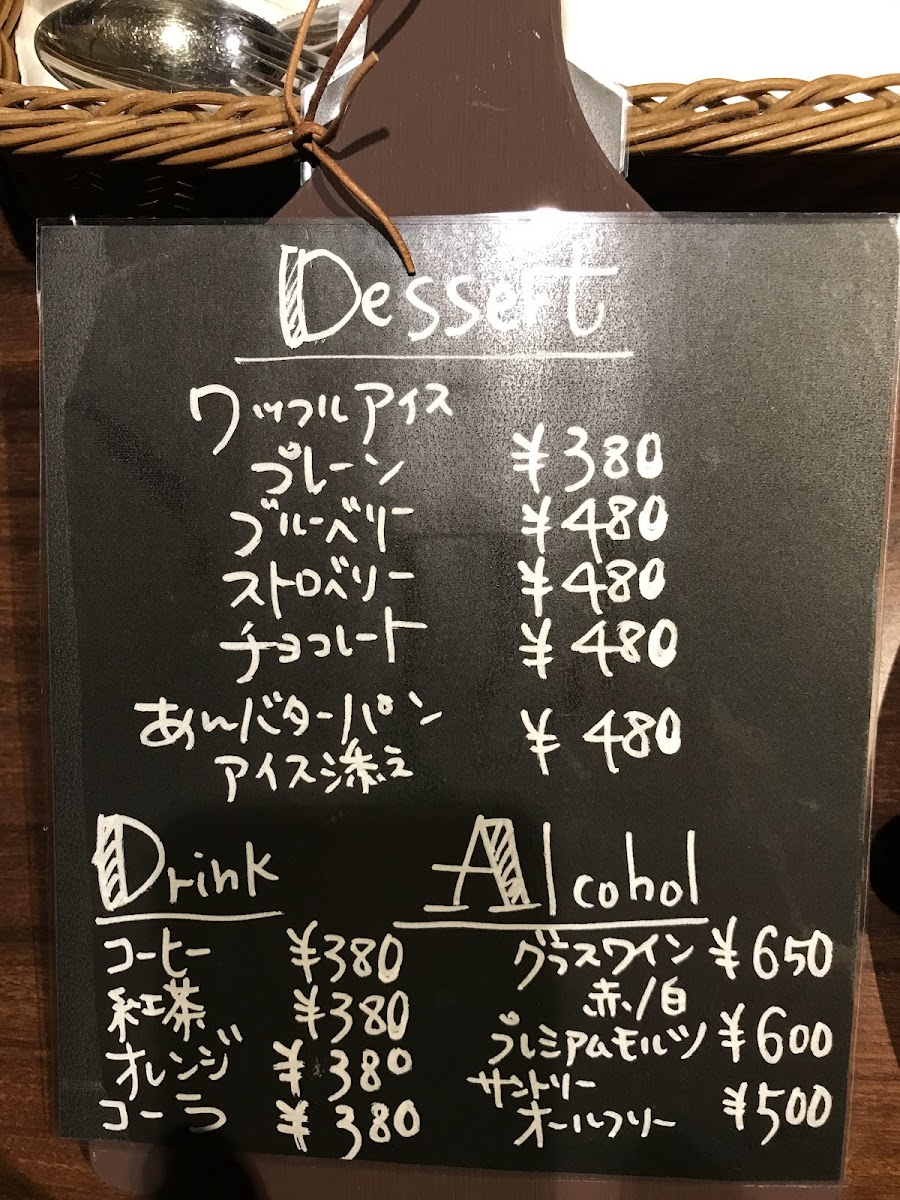 Dessert
ワッフルアイス
プレーン ¥380
ブルーベリー ¥480
ストロベリー ¥480
チョコレート ¥480
あんバターパン ¥480
アイス添え
Drink
コーヒー ¥380
紅茶 ¥380
オレンジ ¥380
コーラ ¥380
Alcohol
グラスワイン ¥650
赤/白
プレミアムモルツ ¥600
サントリー
オールフリー ¥500